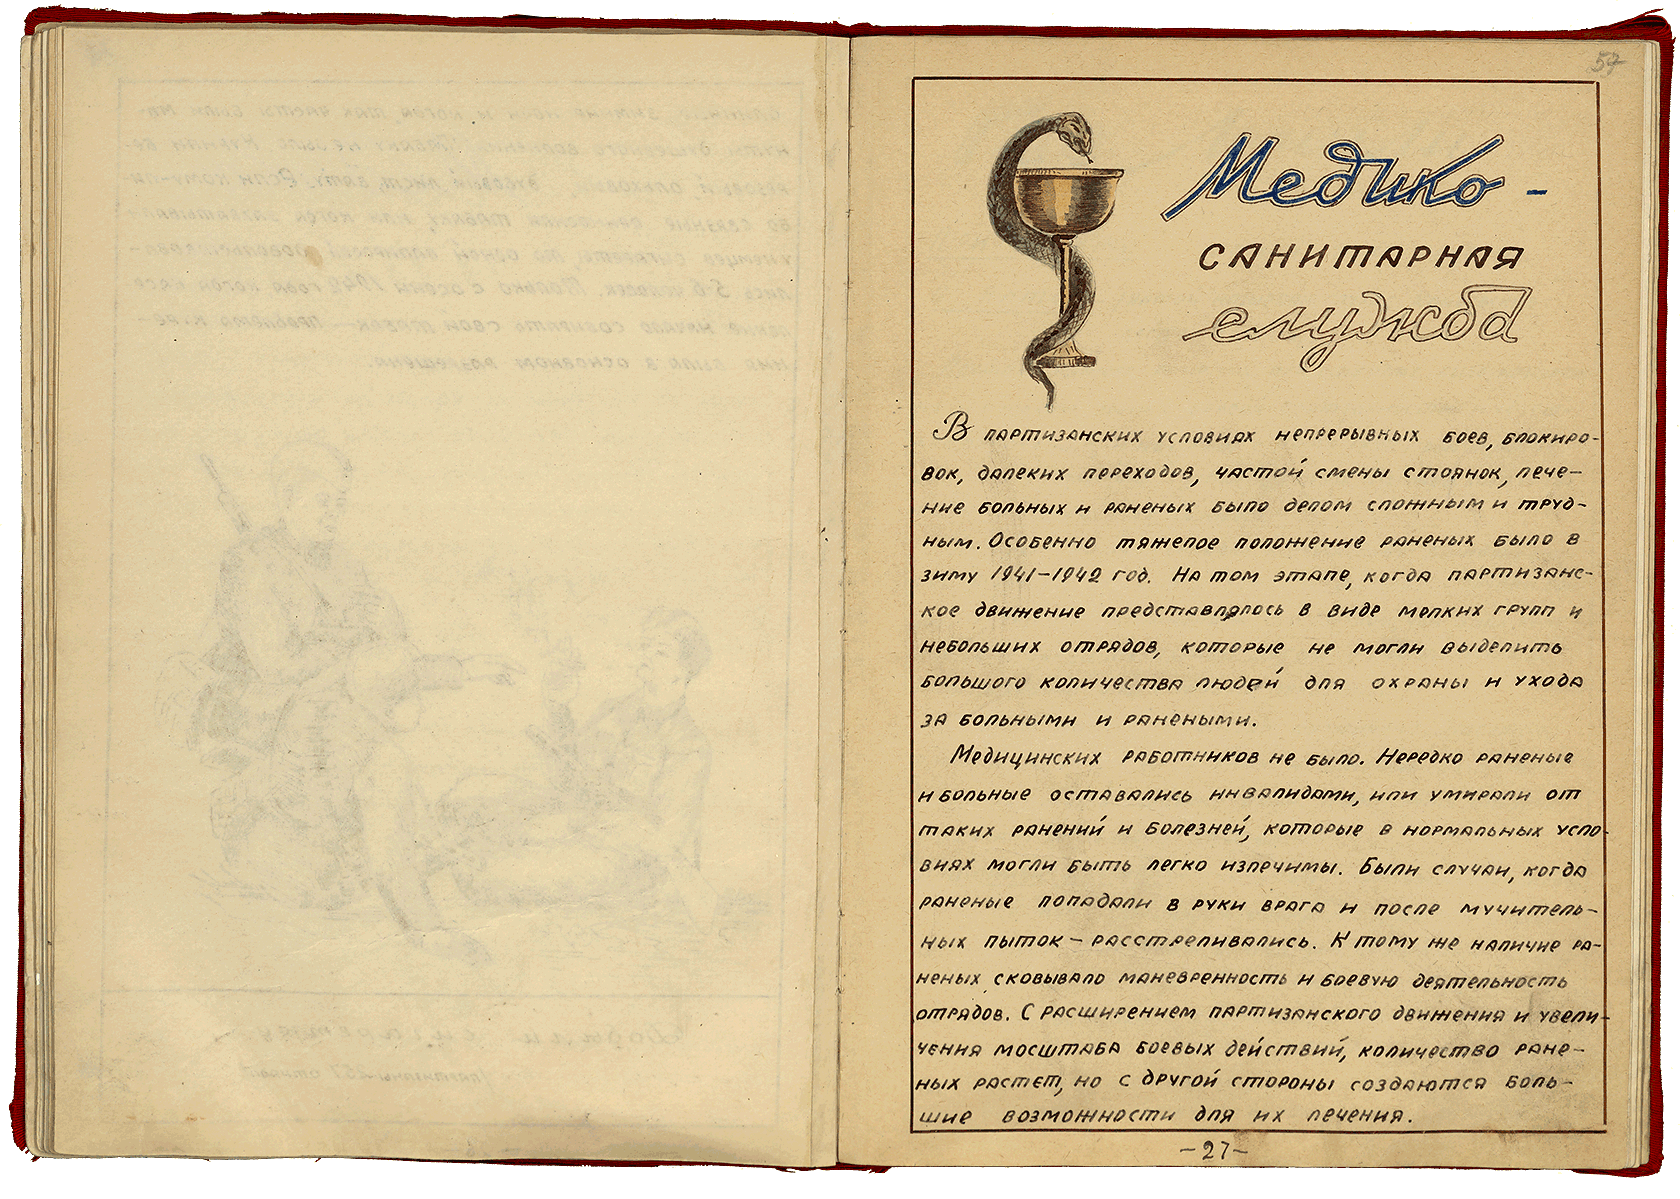 57
Медико-
санитарная
служба
В партизанских условиях непрерывных боев, блокиро-
вок, далеких переходов, частой смены стоянок, лече-
ние больных и раненых было делом сложным и труд-
ным. Особенно тяжелое положение раненых было в
зиму 1941-1942 год. На том этапе, когда партизанс-
кое движение представлялось в виде мелких групп и
небольших отрядов, которые не могли выделить
большого количества людей для охраны и ухода
за больными и ранеными.
Медицинских работников не было. Нередко раненые
и больные оставались инвалидами, или умирали от
таких ранений и болезней, которые в нормальных усло-
виях могли быть легко излечимы. Были случаи, когда
раненые попадали в руки врага и после мучитель-
ных пыток – расстреливались. К тому же наличие ра-
неных сковывало маневренность и боевую деятельность
отрядов. С расширением партизанского движения и увели-
чения мосштаба боевых действий, количество ране-
ных растет, но с другой стороны создаются боль-
шие возможности для их лечения.
-27-